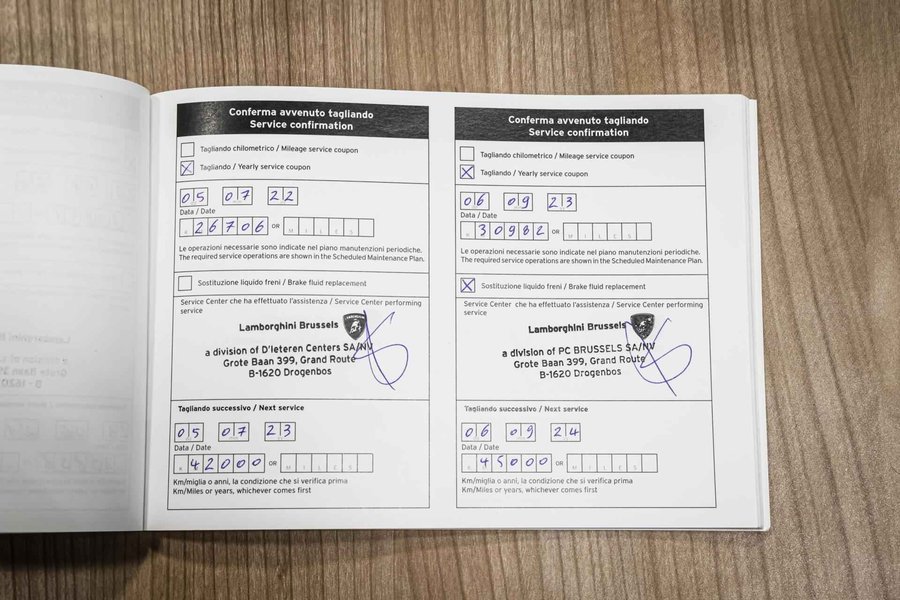 Conferma avvenuto tagliando
Service confirmation
Tagliando chilometrico / Mileage service coupon
X Tagliando / Yearly service coupon
05 07 22
Data / Date
K 26706 OR MILES
Le operazioni necessarie sono indicate nel piano manutenzioni periodiche.
The required service operations are shown in the Scheduled Maintenance Plan.
Sostituzione liquido freni / Brake fluid replacement
Service Center che ha effettuato l'assistenza / Service Center performing
service
Lamborghini Brussels
a division of D'Ieteren Centers SA/NV
Grote Baan 399, Grand Route
B-1620 Drogenbos
Tagliando successivo / Next service
05 07 23
Data / Date
K 42000 OR MILES
Km/miglia o anni, la condizione che si verifica prima
Km/Miles or years, whichever comes first
Conferma avvenuto tagliando
Service confirmation
Tagliando chilometrico / Mileage service coupon
X Tagliando / Yearly service coupon
06 09 23
Data / Date
K 30982 OR MILES
Le operazioni necessarie sono indicate nel piano manutenzioni periodiche.
The required service operations are shown in the Scheduled Maintenance Plan.
X Sostituzione liquido freni / Brake fluid replacement
Service Center che ha effettuato l'assistenza / Service Center performing
service
Lamborghini Brussels
a division of PC BRUSSELS SA/NV
Grote Baan 399, Grand Route
B-1620 Drogenbos
Tagliando successivo / Next service
06 09 24
Data / Date
K 45000 OR MILES
Km/miglia o anni, la condizione che si verifica prima
Km/Miles or years, whichever comes first